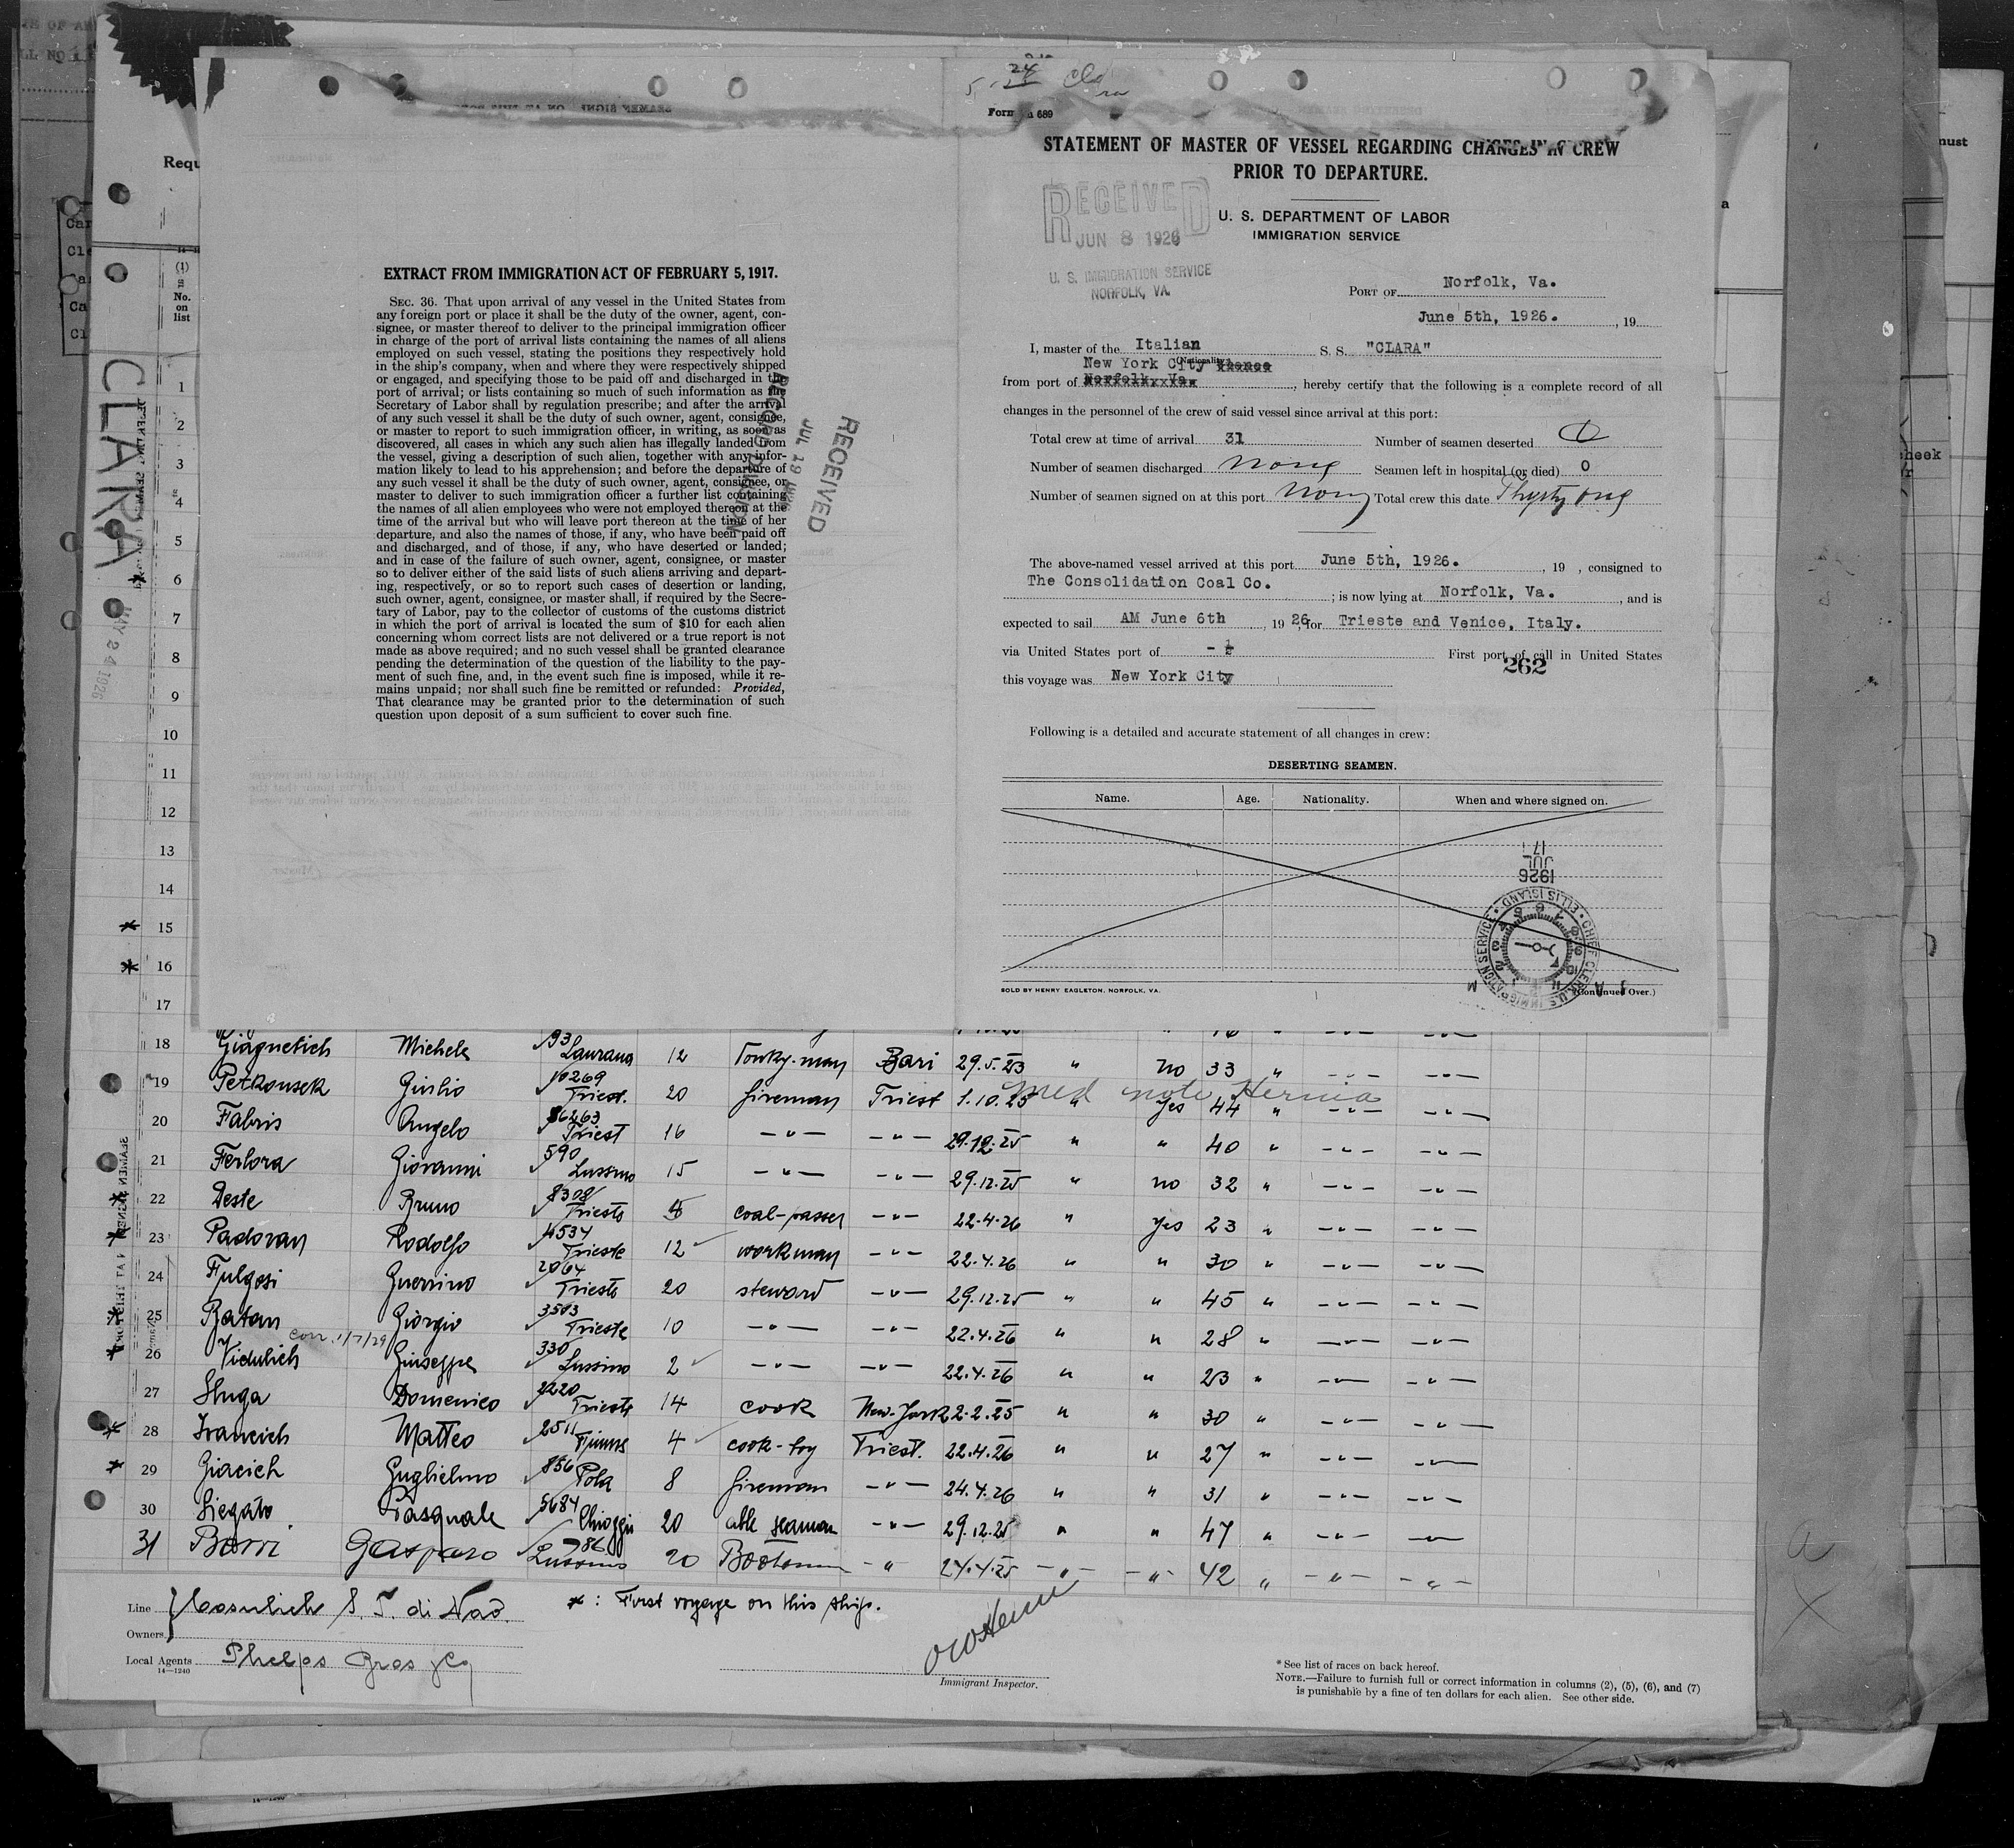 EXTRACT FROM IMMIGRATION ACT OF FEBRUARY 5, 1917.
SEC. 36. That upon arrival of any vessel in the United States from
any foreign port or place it shall be the duty of the owner, agent, con-
signee, or master thereof to deliver to the principal immigration officer
in charge of the port of arrival lists containing the names of all aliens
employed on such vessel, stating the positions they respectively hold
in the ship's company, when and where they were respectively shipped
or engaged, and specifying those to be paid off and discharged in the
port of arrival; or lists containing so much of such information as the
Secretary of Labor shall by regulation prescribe; and after the arrival
of any such vessel it shall be the duty of such owner, agent, consignee,
or master to report to such immigration officer, in writing, as soon as
discovered, all cases in which any such alien has illegally landed from
the vessel, giving a description of such alien, together with any infor-
mation likely to lead to his apprehension; and before the departure of
any such vessel it shall be the duty of such owner, agent, consignee, or
master to deliver to such immigration officer a further list containing
the names of all alien employees who were not employed thereon at the
time of the arrival but who will leave port thereon at the time of her
departure, and also the names of those, if any, who have been paid off
and discharged, and of those, if any, who have deserted or landed;
and in case of the failure of such owner, agent, consignee, or master
so to deliver either of the said lists of such aliens arriving and depart-
ing, respectively, or so to report such cases of desertion or landing,
such owner, agent, consignee, or master shall, if required by the Secre-
tary of Labor, pay to the collector of customs of the customs district
in which the port of arrival is located the sum of $10 for each alien
concerning whom correct lists are not delivered or a true report is not
made as above required; and no such vessel shall be granted clearance
pending the determination of the question of the liability to the pay-
ment of such fine, and, in the event such fine is imposed, while it re-
mains unpaid; nor shall such fine be remitted or refunded: Provided,
That clearance may be granted prior to the determination of such
question upon deposit of a sum sufficient to cover such fine.
RECEIVED
JUL 19
RECORD DIVISION
Form 689
STATEMENT OF MASTER OF VESSEL REGARDING CHANGES IN CREW
PRIOR TO DEPARTURE.
RECEIVED
JUN 8 1926
U. S. IMMIGRATION SERVICE
NORFOLK, VA.
U. S. DEPARTMENT OF LABOR
IMMIGRATION SERVICE
PORT OF Norfolk, Va.
June 5th, 1926. , 19
I, master of the Italian S. S. "CLARA"
(Nationality)
New York City
from port of Norfolk, Va. , hereby certify that the following is a complete record of all
changes in the personnel of the crew of said vessel since arrival at this port:
Total crew at time of arrival 31 Number of seamen deserted 0
Number of seamen discharged none Seamen left in hospital (or died) 0
Number of seamen signed on at this port none Total crew this date Thirty one
The above-named vessel arrived at this port June 5th, 1926. , 19 , consigned to
The Consolidation Coal Co. ; is now lying at Norfolk, Va. , and is
expected to sail AM June 6th , 1926, for Trieste and Venice, Italy.
via United States port of First port of call in United States
262
this voyage was New York City
Following is a detailed and accurate statement of all changes in crew:
DESERTING SEAMEN.
Name. Age. Nationality. When and where signed on.
1926
JUL
17
CHIEF CLERK U.S. IMMIGRATION SERVICE • ELLIS ISLAND •
SOLD BY HENRY EAGLETON, NORFOLK, VA.
(Continued Over.)
Requ
(1)
No.
on
list
CLARA
MAY 24 1926
1
2
3
4
5
6
7
8
9
10
11
12
13
14
15
16
17
18 Giagnetich Michele 93 Laurana 12 Donky-man Bari 29.5.23 " no 33 "
19 Petkousek Giulio 10269 Triest. 20 fireman Triest 1.10.25 " yes 44 "
med note Hernia
20 Fabris Angelo 86263 Triest 16 -"- -"- 29.12.25 " " 40 "
21 Ferlora Giovanni 590 Lussino 15 -"- -"- 29.12.25 " no 32 "
22 Deste Bruno 8308 Trieste 5 coal-passer -"- 22.4.26 " yes 23 "
23 Padovan Rodolfo 4534 Trieste 12 workman -"- 22.4.26 " " 30 "
24 Fulgosi Guerrino 2064 Trieste 20 steward -"- 29.12.25 " " 45 "
25 Batan Giorgio 3503 Trieste 10 -"- -"- 22.4.26 " " 28 "
corr. 1/7/29
26 Vidulich Giuseppe 330 Lussino 2 -"- -"- 22.4.26 " " 23 "
27 Sluga Domenico 2220 Trieste 14 cook New-York 2.2.25 " " 30 "
28 Ivancich Matteo 2511 Fiume 4 cook-boy Triest. 22.4.26 " " 27 "
29 Giacich Guglielmo 856 Pola 8 fireman -"- 24.4.26 " " 31 "
30 Siegato Pasquale 5684 Chioggia 20 able seaman -"- 29.12.25 " " 47 "
31 Barri Gasparo 786 Lussino 20 Bootsman -"- 24.4.25 -"- -"- 42 "
Line
Cosulich S. T. di Nav.
* : First voyage on this ship.
Owners
Local Agents Phelps Bros & Co
14—1240
Immigrant Inspector.
* See list of races on back hereof.
NOTE.—Failure to furnish full or correct information in columns (2), (5), (6), and (7)
is punishable by a fine of ten dollars for each alien. See other side.